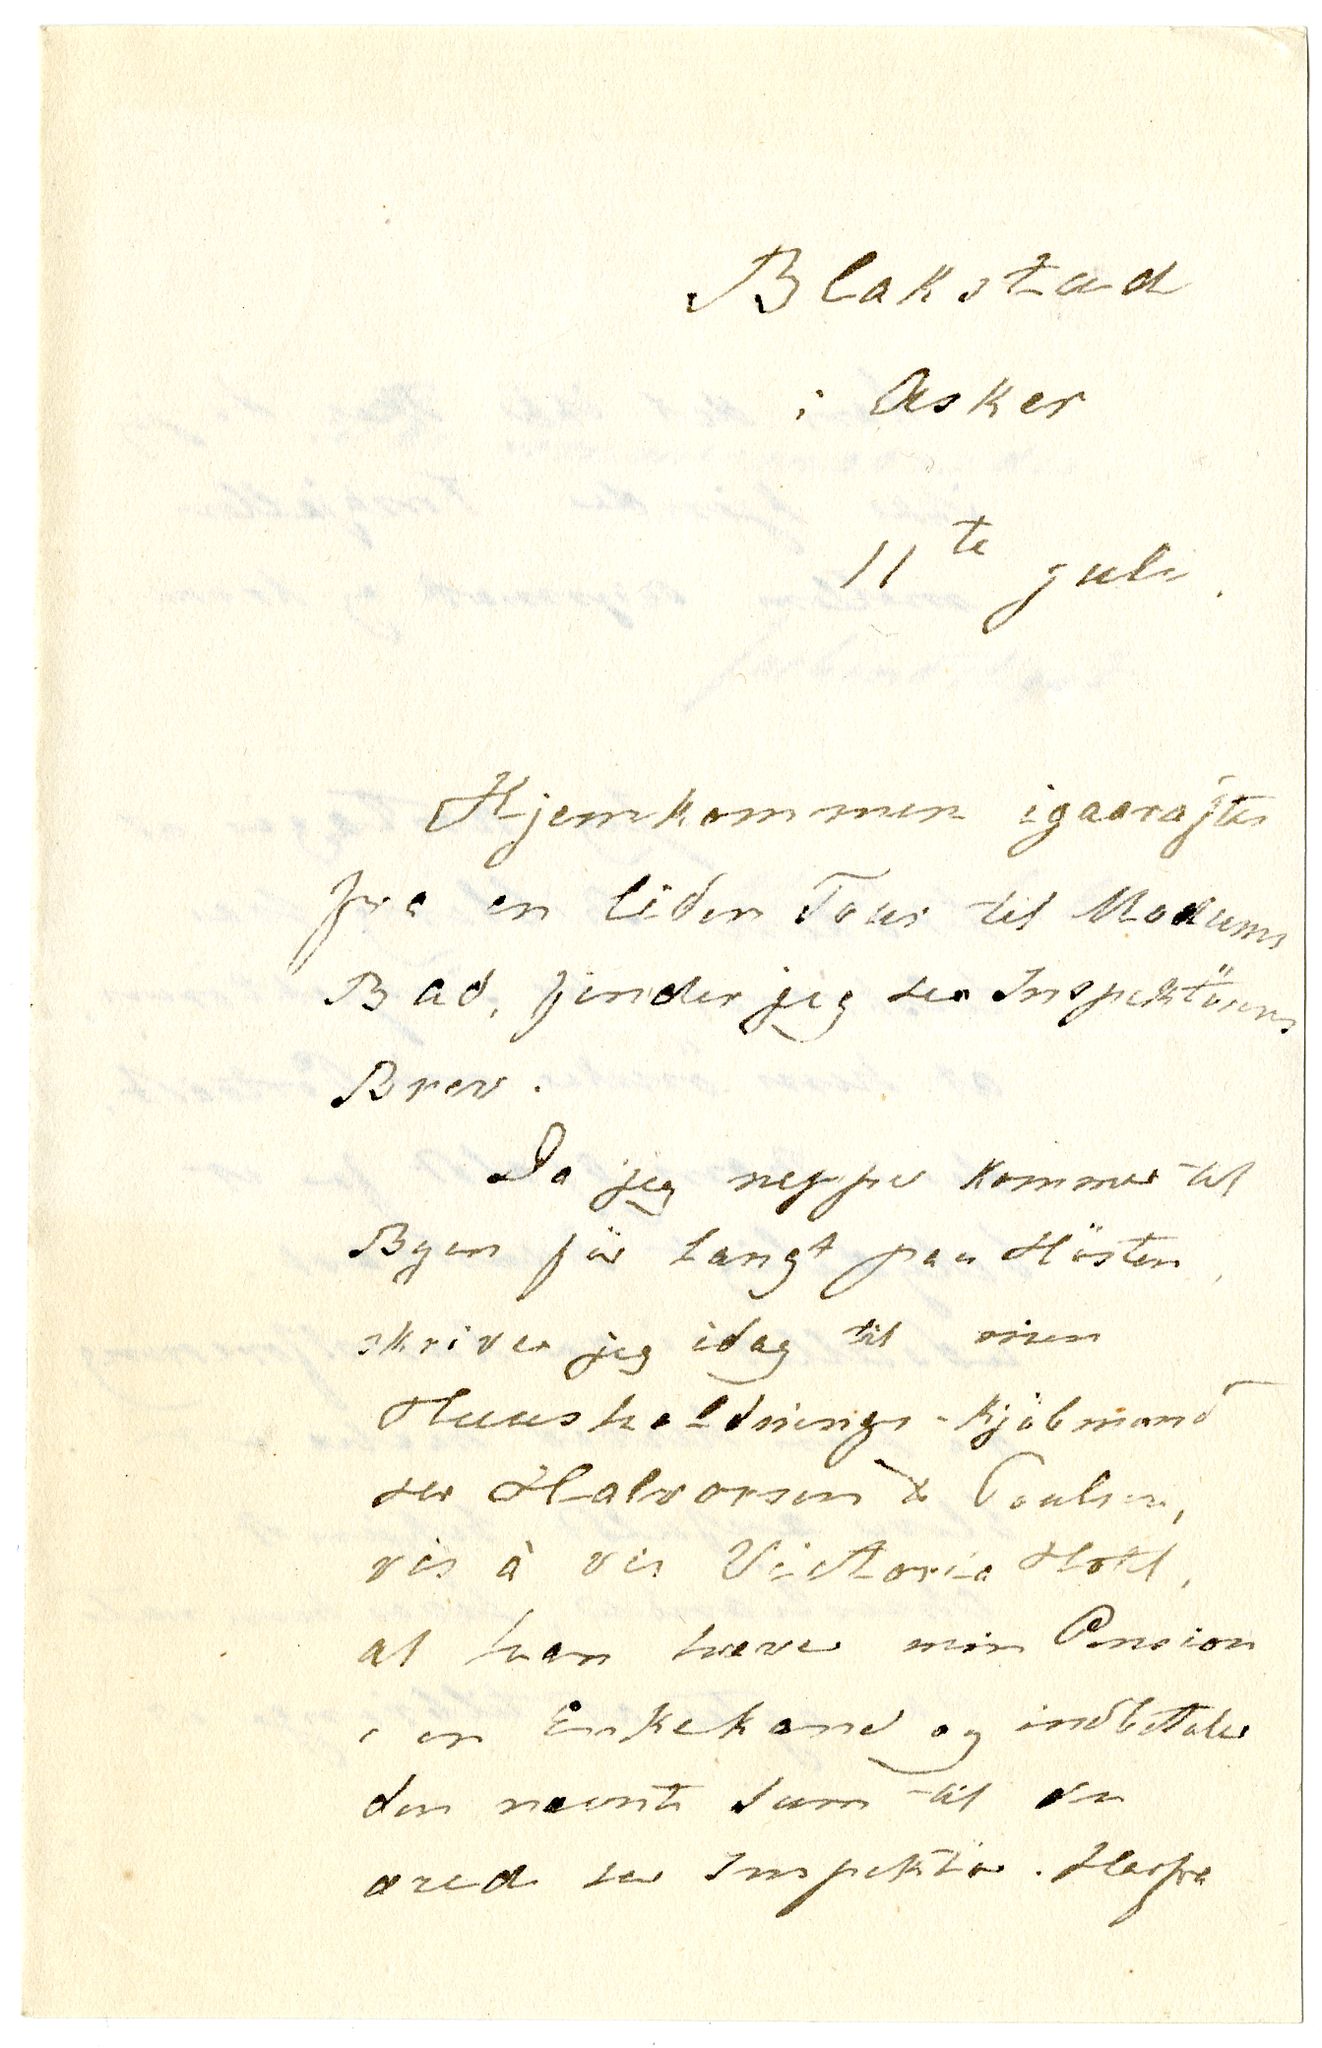 Blakstad
i Asker
11te Juli.
Hjemkommen igaaraftes
fra en liden Tour til Modums
Bad, finder jeg Hr Inspektörens
Brev.
Da jeg neppe kommer til
Byen för langt paa Hösten,
skriver jeg idag til min
Huusholdnings-Kjöbmand
Hr Halvorsen & Poulsen,
vis à vis Victoria Hotel,
at han hæver min Pension
i en Enkekand og indbetaler
den nævnte Sum til den
ærede Hr Inspektör. Herfra